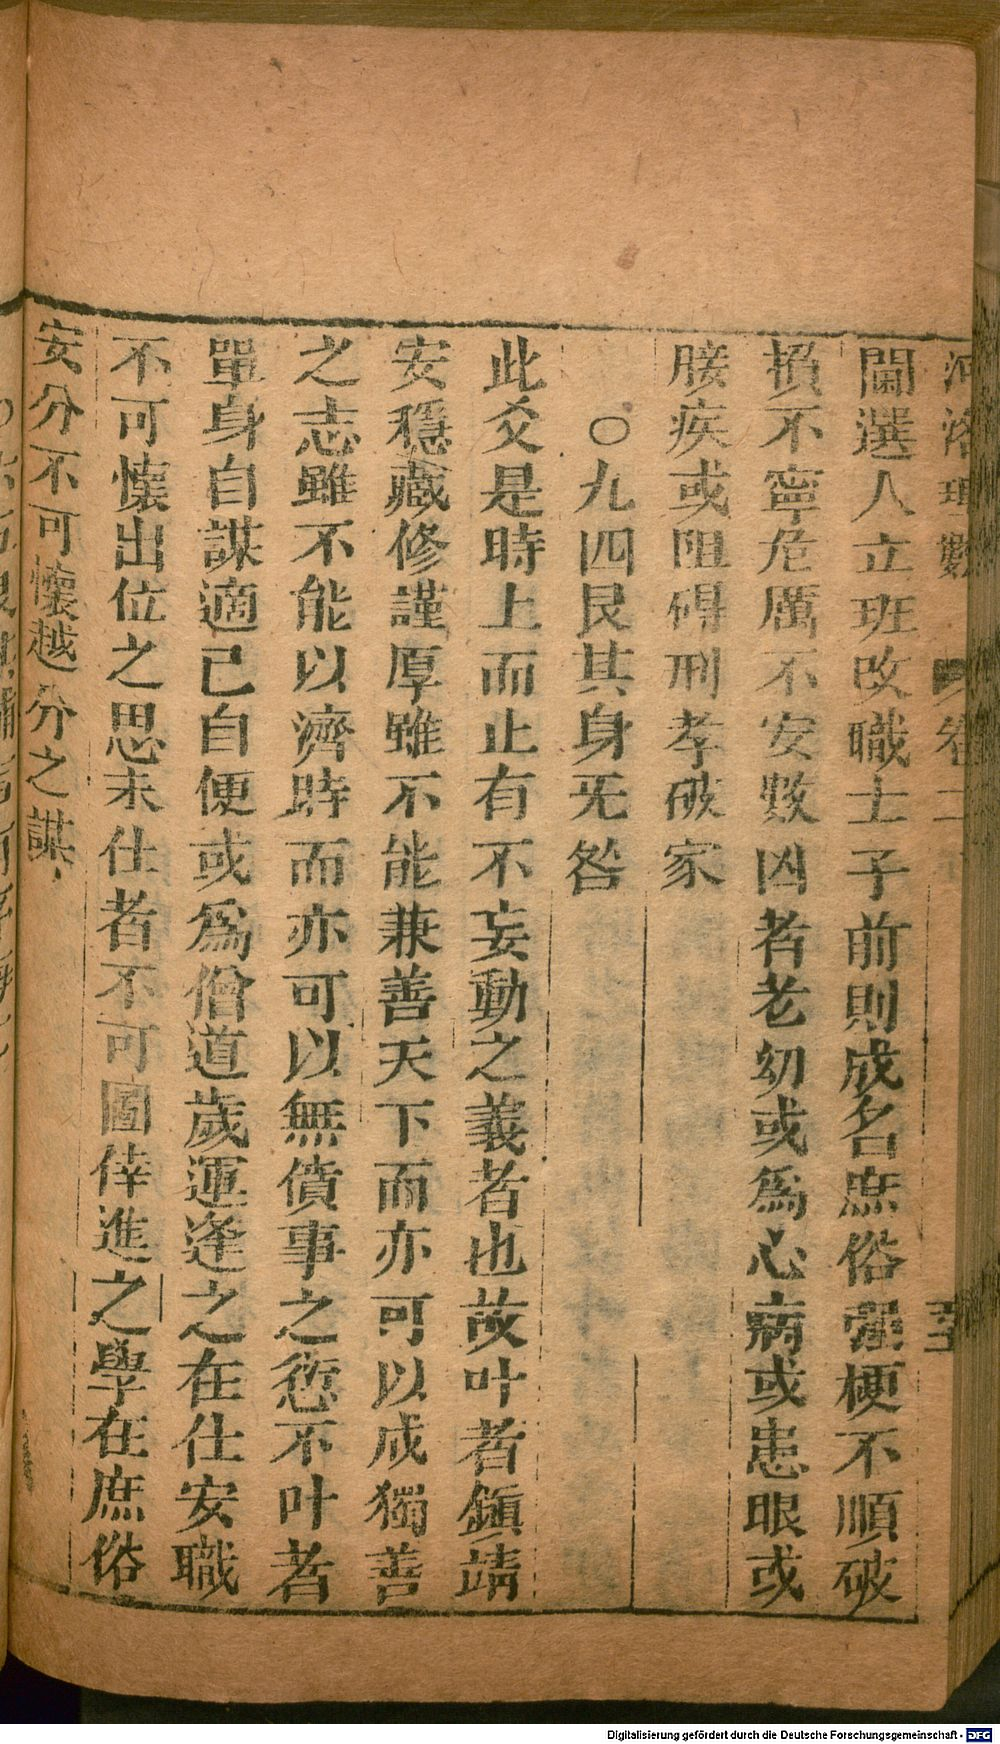 河洛理數 卷二
閫選人立班改職士子前則成名庶俗強梗不順破
損不寧危厲不安數凶者老幼或為心病或患眼或
接疾或阻碍刑孝破家
○九四艮其身旡咎
此爻是時上而止有不妄動之義者也故叶者鎮靖
安穩藏修謹厚雖不能兼善天下而亦可以成獨善
之志雖不能以濟時而亦可以無僨事之愆不叶者
單身自謀適己自便或為僧道歲運逢之在仕安職
不可懷出位之思未仕者不可圖倖進之學在庶俗
安分不可懷越分之謀
Digitalisierung gefördert durch die Deutsche Forschungsgemeinschaft - DFG